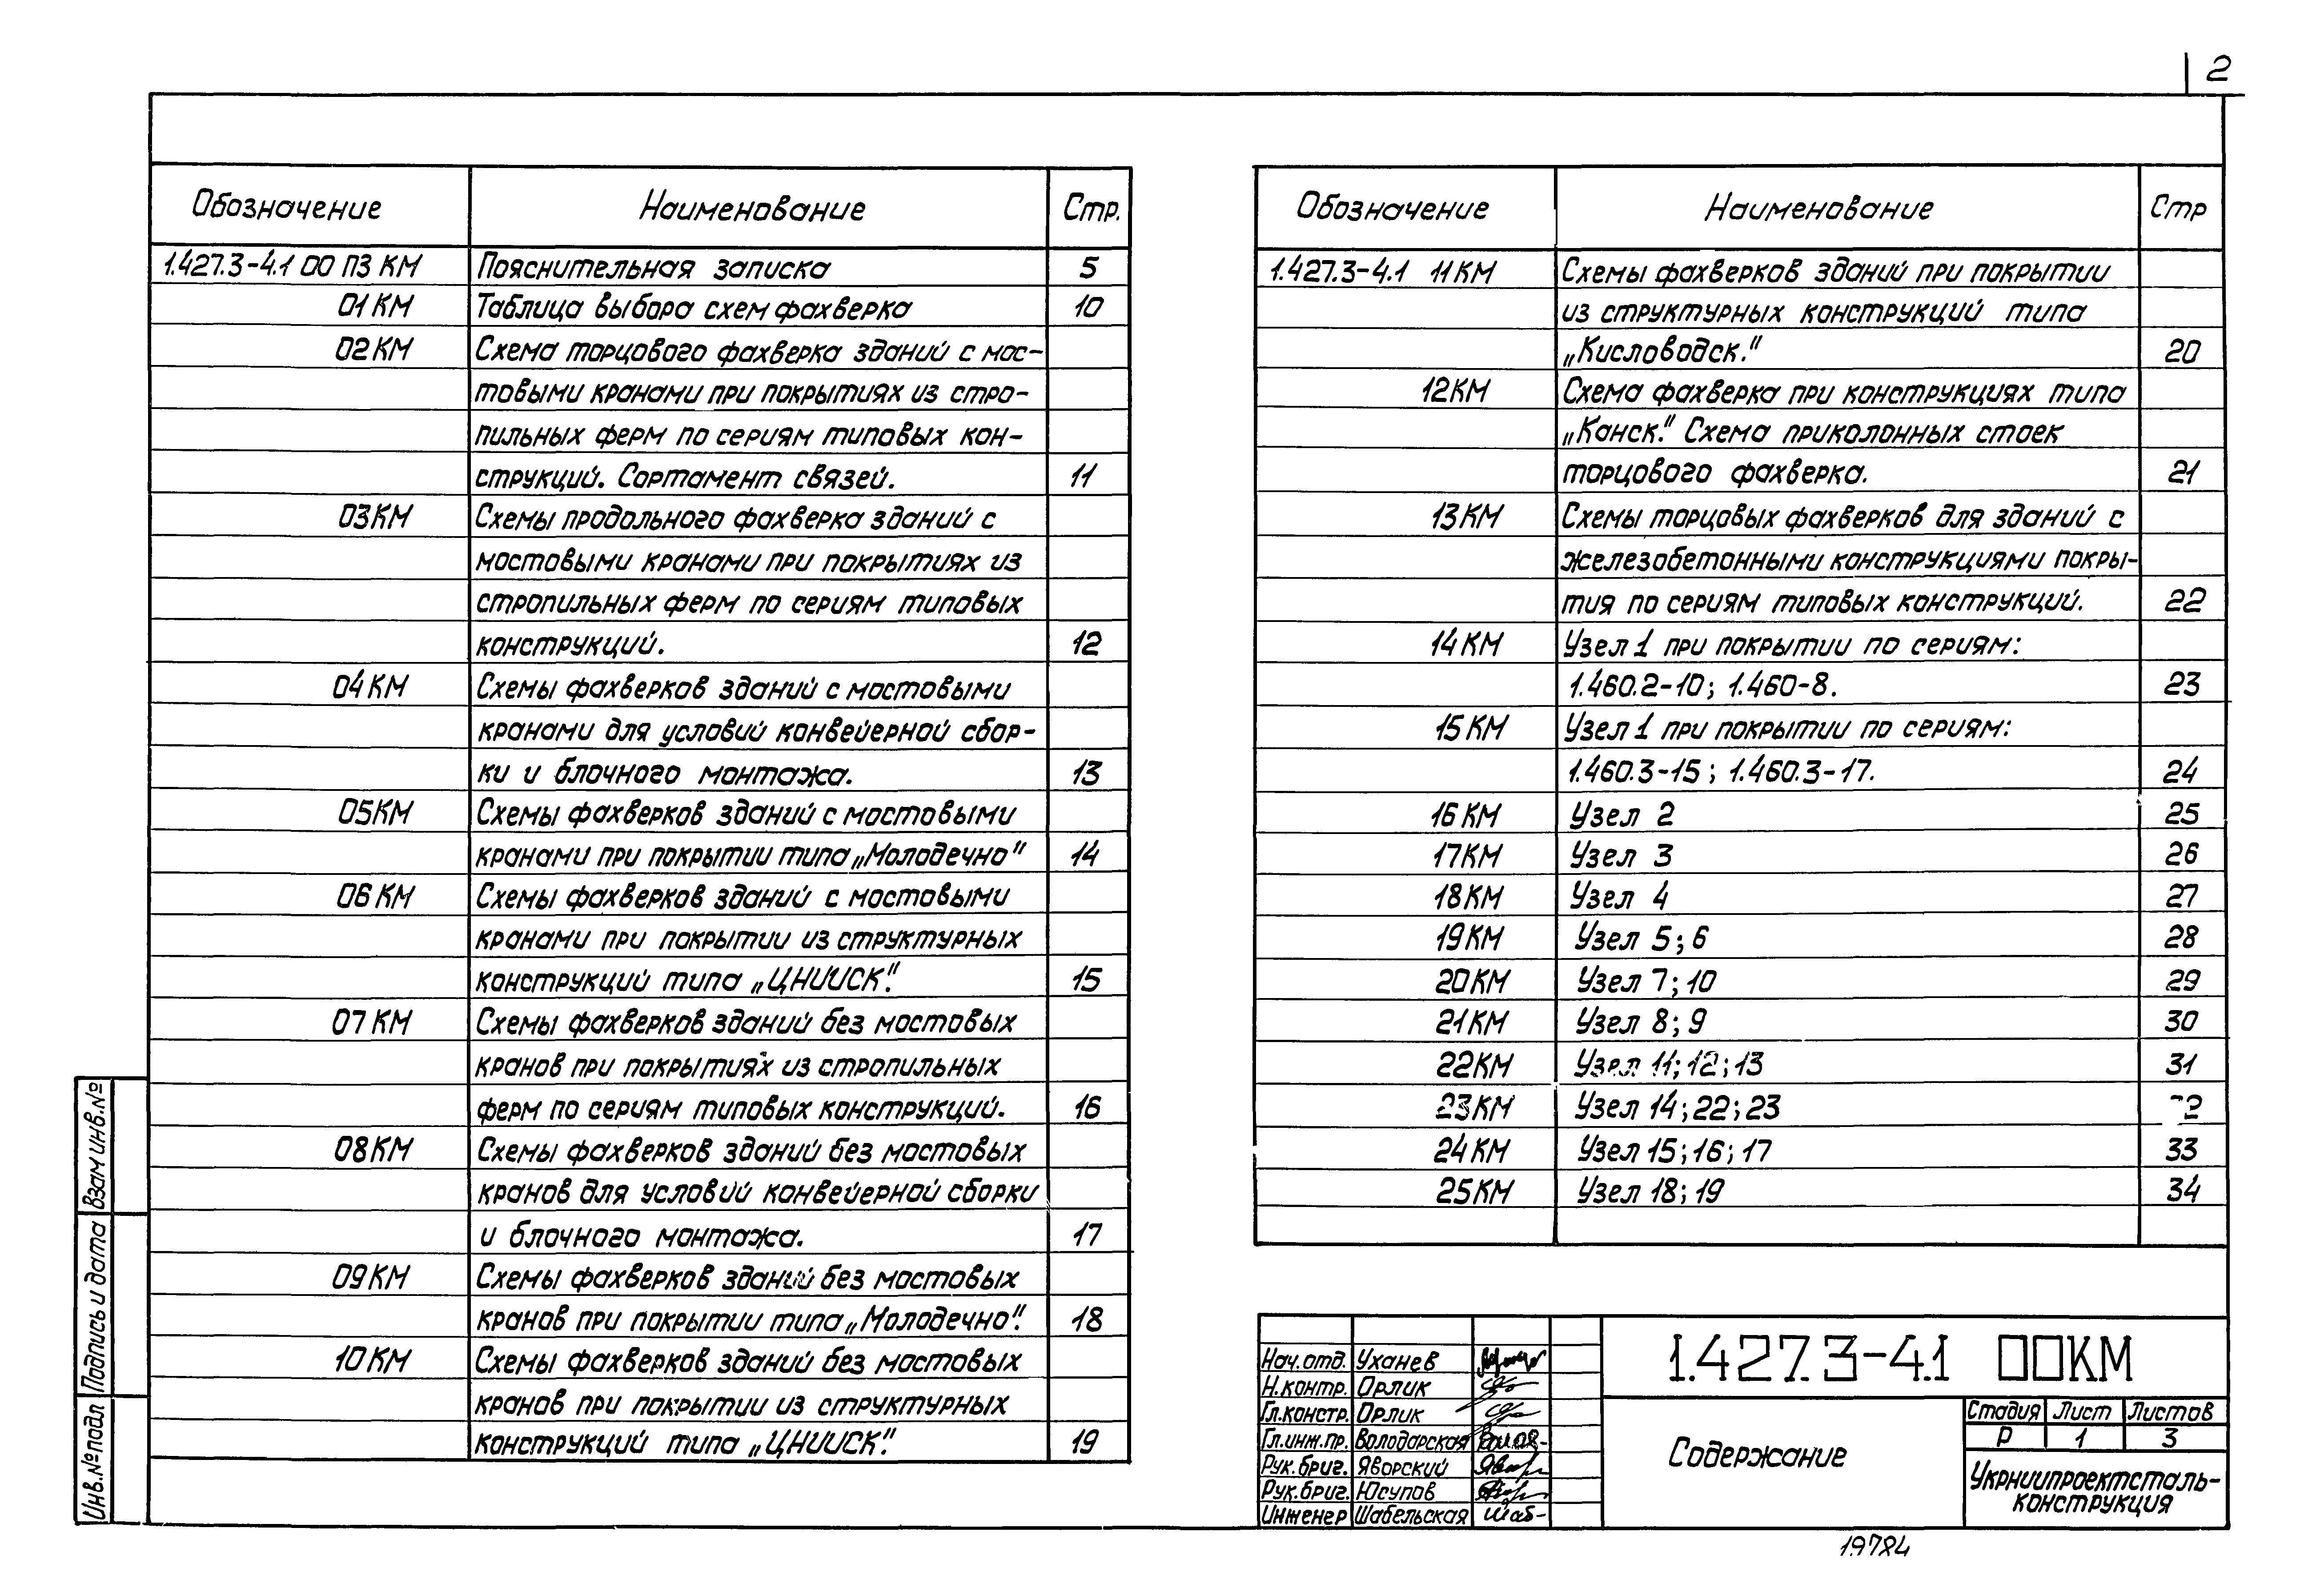 2
Обозначение Наименование Стр.
1.427.3-4.1 00 ПЗ КМ Пояснительная записка 5
01 КМ Таблица выбора схем фахверка 10
02 КМ Схема торцового фахверка зданий с мос-
товыми кранами при покрытиях из стро-
пильных ферм по сериям типовых кон-
струкций. Сортамент связей. 11
03 КМ Схемы продольного фахверка зданий с
мостовыми кранами при покрытиях из
стропильных ферм по сериям типовых
конструкций. 12
04 КМ Схемы фахверков зданий с мостовыми
кранами для условий конвейерной сбор-
ки и блочного монтажа. 13
05 КМ Схемы фахверков зданий с мостовыми
кранами при покрытии типа „Молодечно" 14
06 КМ Схемы фахверков зданий с мостовыми
кранами при покрытии из структурных
конструкций типа „ЦНИИСК". 15
07 КМ Схемы фахверков зданий без мостовых
кранов при покрытиях из стропильных
ферм по сериям типовых конструкций. 16
08 КМ Схемы фахверков зданий без мостовых
кранов для условий конвейерной сборки
и блочного монтажа. 17
09 КМ Схемы фахверков зданий без мостовых
кранов при покрытии типа „Молодечно". 18
10 КМ Схемы фахверков зданий без мостовых
кранов при покрытии из структурных
конструкций типа „ЦНИИСК". 19
Обозначение Наименование Стр
1.427.3-4.1 11 КМ Схемы фахверков зданий при покрытии
из структурных конструкций типа
„Кисловодск." 20
12 КМ Схема фахверка при конструкциях типа
„Канск." Схема приколонных стоек
торцового фахверка. 21
13 КМ Схемы торцовых фахверков для зданий с
железобетонными конструкциями покры-
тия по сериям типовых конструкций. 22
14 КМ Узел 1 при покрытии по сериям:
1.460.2-10; 1.460-8. 23
15 КМ Узел 1 при покрытии по сериям:
1.460.3-15; 1.460.3-17. 24
16 КМ Узел 2 25
17 КМ Узел 3 26
18 КМ Узел 4 27
19 КМ Узел 5; 6 28
20 КМ Узел 7; 10 29
21 КМ Узел 8; 9 30
22 КМ Узел 11; 12; 13 31
23 КМ Узел 14; 22; 23
24 КМ Узел 15; 16; 17 33
25 КМ Узел 18; 19 34
Взам инв. №
Подпись и дата
Инв. № подл
Нач. отд. Уханев
Н. контр. Орлик
Гл. констр. Орлик
Гл. инж. пр. Володарская
Рук. бриг. Яворский
Рук. бриг. Юсупов
Инженер Шабельская Шаб-
1.427.3-4.1 00КМ
Содержание
Стадия Лист Листов
Р 1 3
Укрниипроектсталь-
конструкция
19784